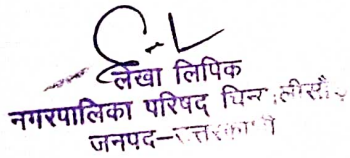 लेखा लिपिक
नगरपालिका परिषद
जनपद-उत्तरकाशी